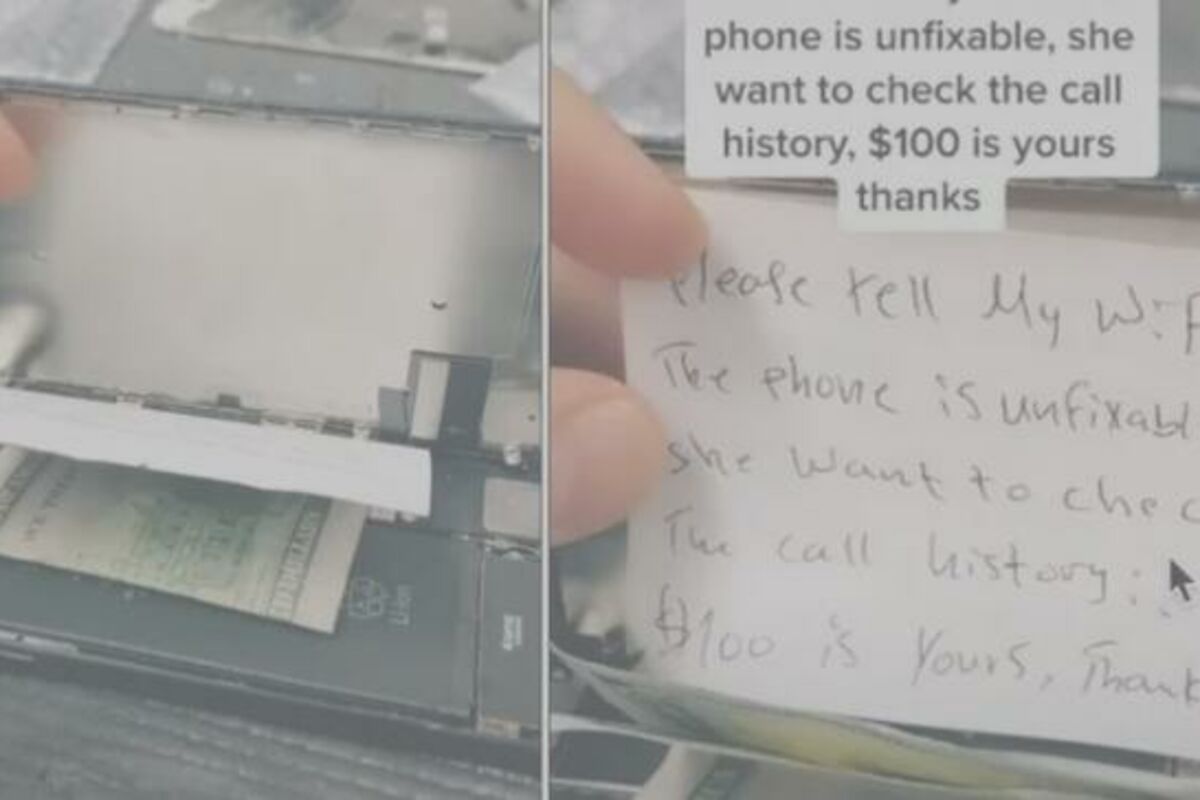 phone is unfixable, she
want to check the call
history, $100 is yours
thanks
Please tell My Wif
The phone is unfixabl
she want to chec
The call history:
$100 is yours, Thank
Li-ion